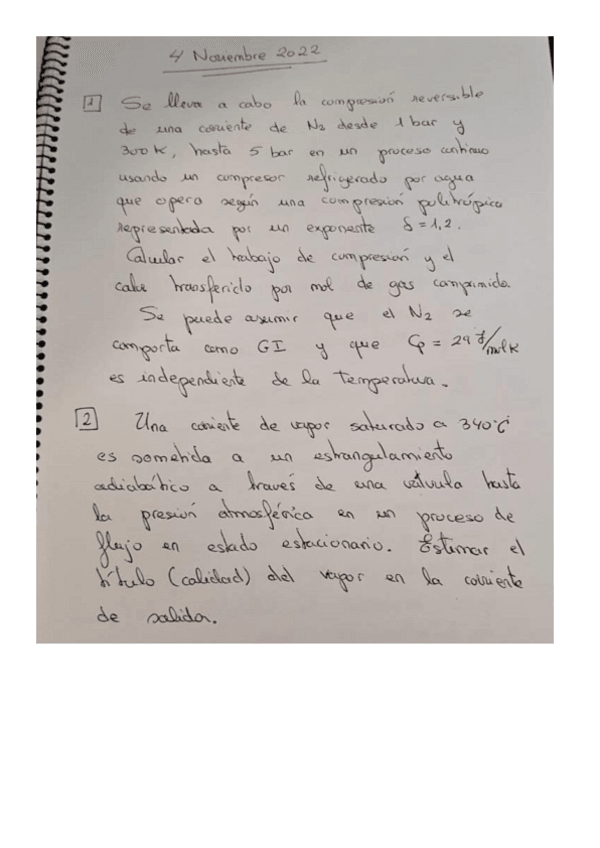 4 Noviembre 2022
1 Se lleva a cabo la compresión reversible
de una corriente de N₂ desde 1 bar y
300 K, hasta 5 bar en un proceso continuo
usando un compresor refrigerado por agua
que opera según una compresión politrópica
representada por un exponente δ = 1,2.
Calcular el trabajo de compresión y el
calor transferido por mol de gas comprimido.
Se puede asumir que el N₂ se
comporta como GI y que Cp = 29 J/mol K
es independiente de la temperatura.
2 Una corriente de vapor saturado a 340°C
es sometida a un estrangulamiento
adiabático a través de una válvula hasta
la presión atmosférica en un proceso de
flujo en estado estacionario. Estimar el
título (calidad) del vapor en la corriente
de salida.